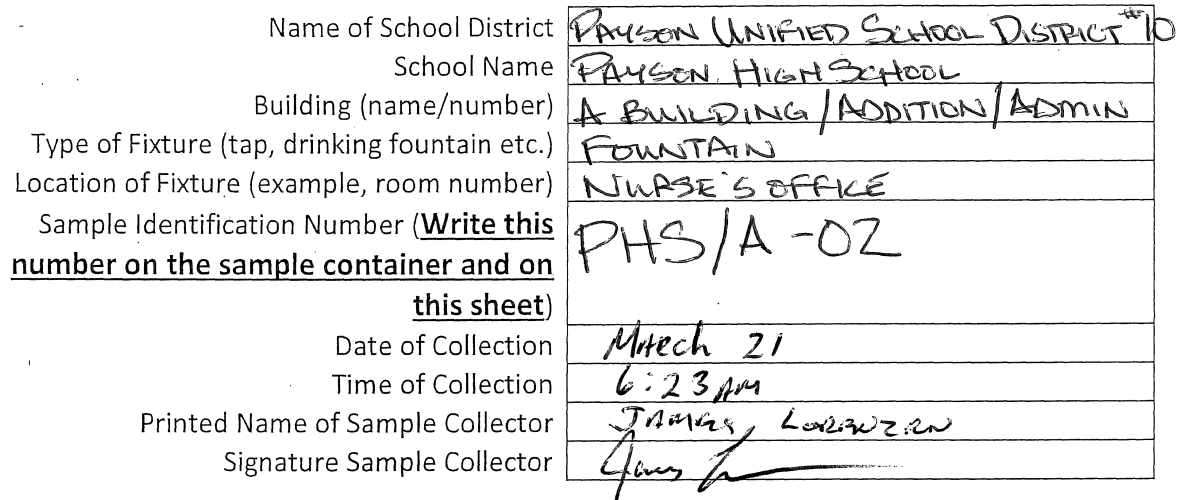 Name of School District PAYSON UNIFIED SCHOOL DISTRICT #10
School Name PAYSON HIGH SCHOOL
Building (name/number) A BUILDING/ADDITION/ADMIN
Type of Fixture (tap, drinking fountain etc.) FOUNTAIN
Location of Fixture (example, room number) NURSE'S OFFICE
Sample Identification Number (Write this PHS/A-02
number on the sample container and on
this sheet)
Date of Collection March 21
Time of Collection 6:23 AM
Printed Name of Sample Collector JAMES LORENZEN
Signature Sample Collector James